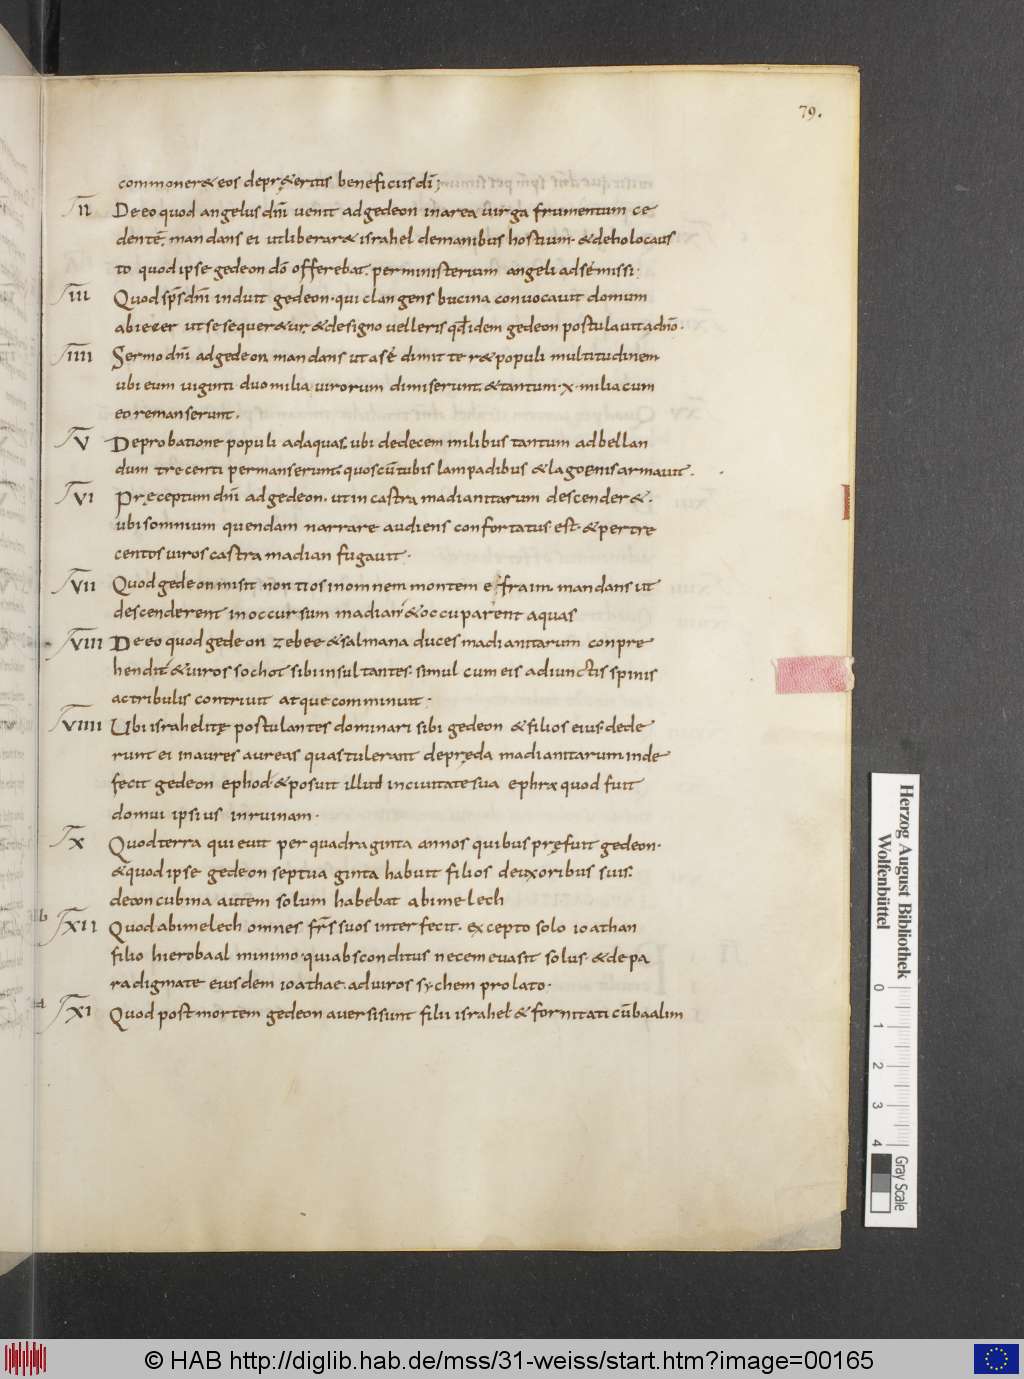 79.
commoner& eos depręeritis beneficiis dī;
II De eo quod angelus dn̄i uenit ad gedeon in area uirga frumentum ce
dentē, mandans ei ut liberar& israhel de manibus hostium. & de holocaus
to quod ipse gedeon dō offerebat. per ministerium angeli ad sé missi.
III Quod sp̄s dn̄i induit gedeon. qui clangens bucina conuocauit domum
abiezer ut se sequer&ur, & de signo uelleris qđ idem gedeon postulauit a dn̄o.
IIII Sermo dn̄i ad gedeon mandans ut a sé dimitter& populi multitudinem
ubi eum uiginti duo milia uirorum dimiserunt, & tantum .x. milia cum
eo remanserunt.
V De probatione populi ad aquas, ubi de decem milibus tantum ad bellan
dum trecenti permanserunt, quos cū tubis lampadibus & lagoenis armauit.
VI Pręceptum dn̄i ad gedeon. ut in castra madianitarum descender&.
ubi somnium quendam narrare audiens confortatus est. & per tre
centos uiros castra madian fugauit.
VII Quod gedeon misit nontios in omnem montem effraim. mandans ut
descenderent in occursum madian & occuparent aquas
VIII De eo quod gedeon zebee & salmana duces madianitarum conpre
hendit & uiros sochot sibi insultantes. simul cum eis adiunctis spinis
ac tribulis contriuit atque comminuit.
VIIII Ubi israhelitę postulantes dominari sibi gedeon & filios eius. dede
runt ei inaures aureas quas tulerant de pręda madianitarum. inde
fecit gedeon ephod. & posuit illud in ciuitate sua ephra quod fuit
domui ipsius in ruinam.
X Quod terra quieuit per quadraginta annos quibus pręfuit gedeon.
& quod ipse gedeon septuaginta habuit filios de uxoribus suis.
de concubina autem solum habebat abimelech
b XII Quod abimelech omnes fr̄s suos interfecit. excepto solo ioathan
filio hierobaal minimo. qui absconditus necem euasit solus. & de pa
radigmate eiusdem ioathae. ad uiros sychem prolato.
a XI Quod post mortem gedeon auersi sunt filii israhel & fornitati cū baalim
Herzog August Bibliothek
Wolfenbüttel
0 1 2 3 4
Gray Scale
© HAB http://diglib.hab.de/mss/31-weiss/start.htm?image=00165